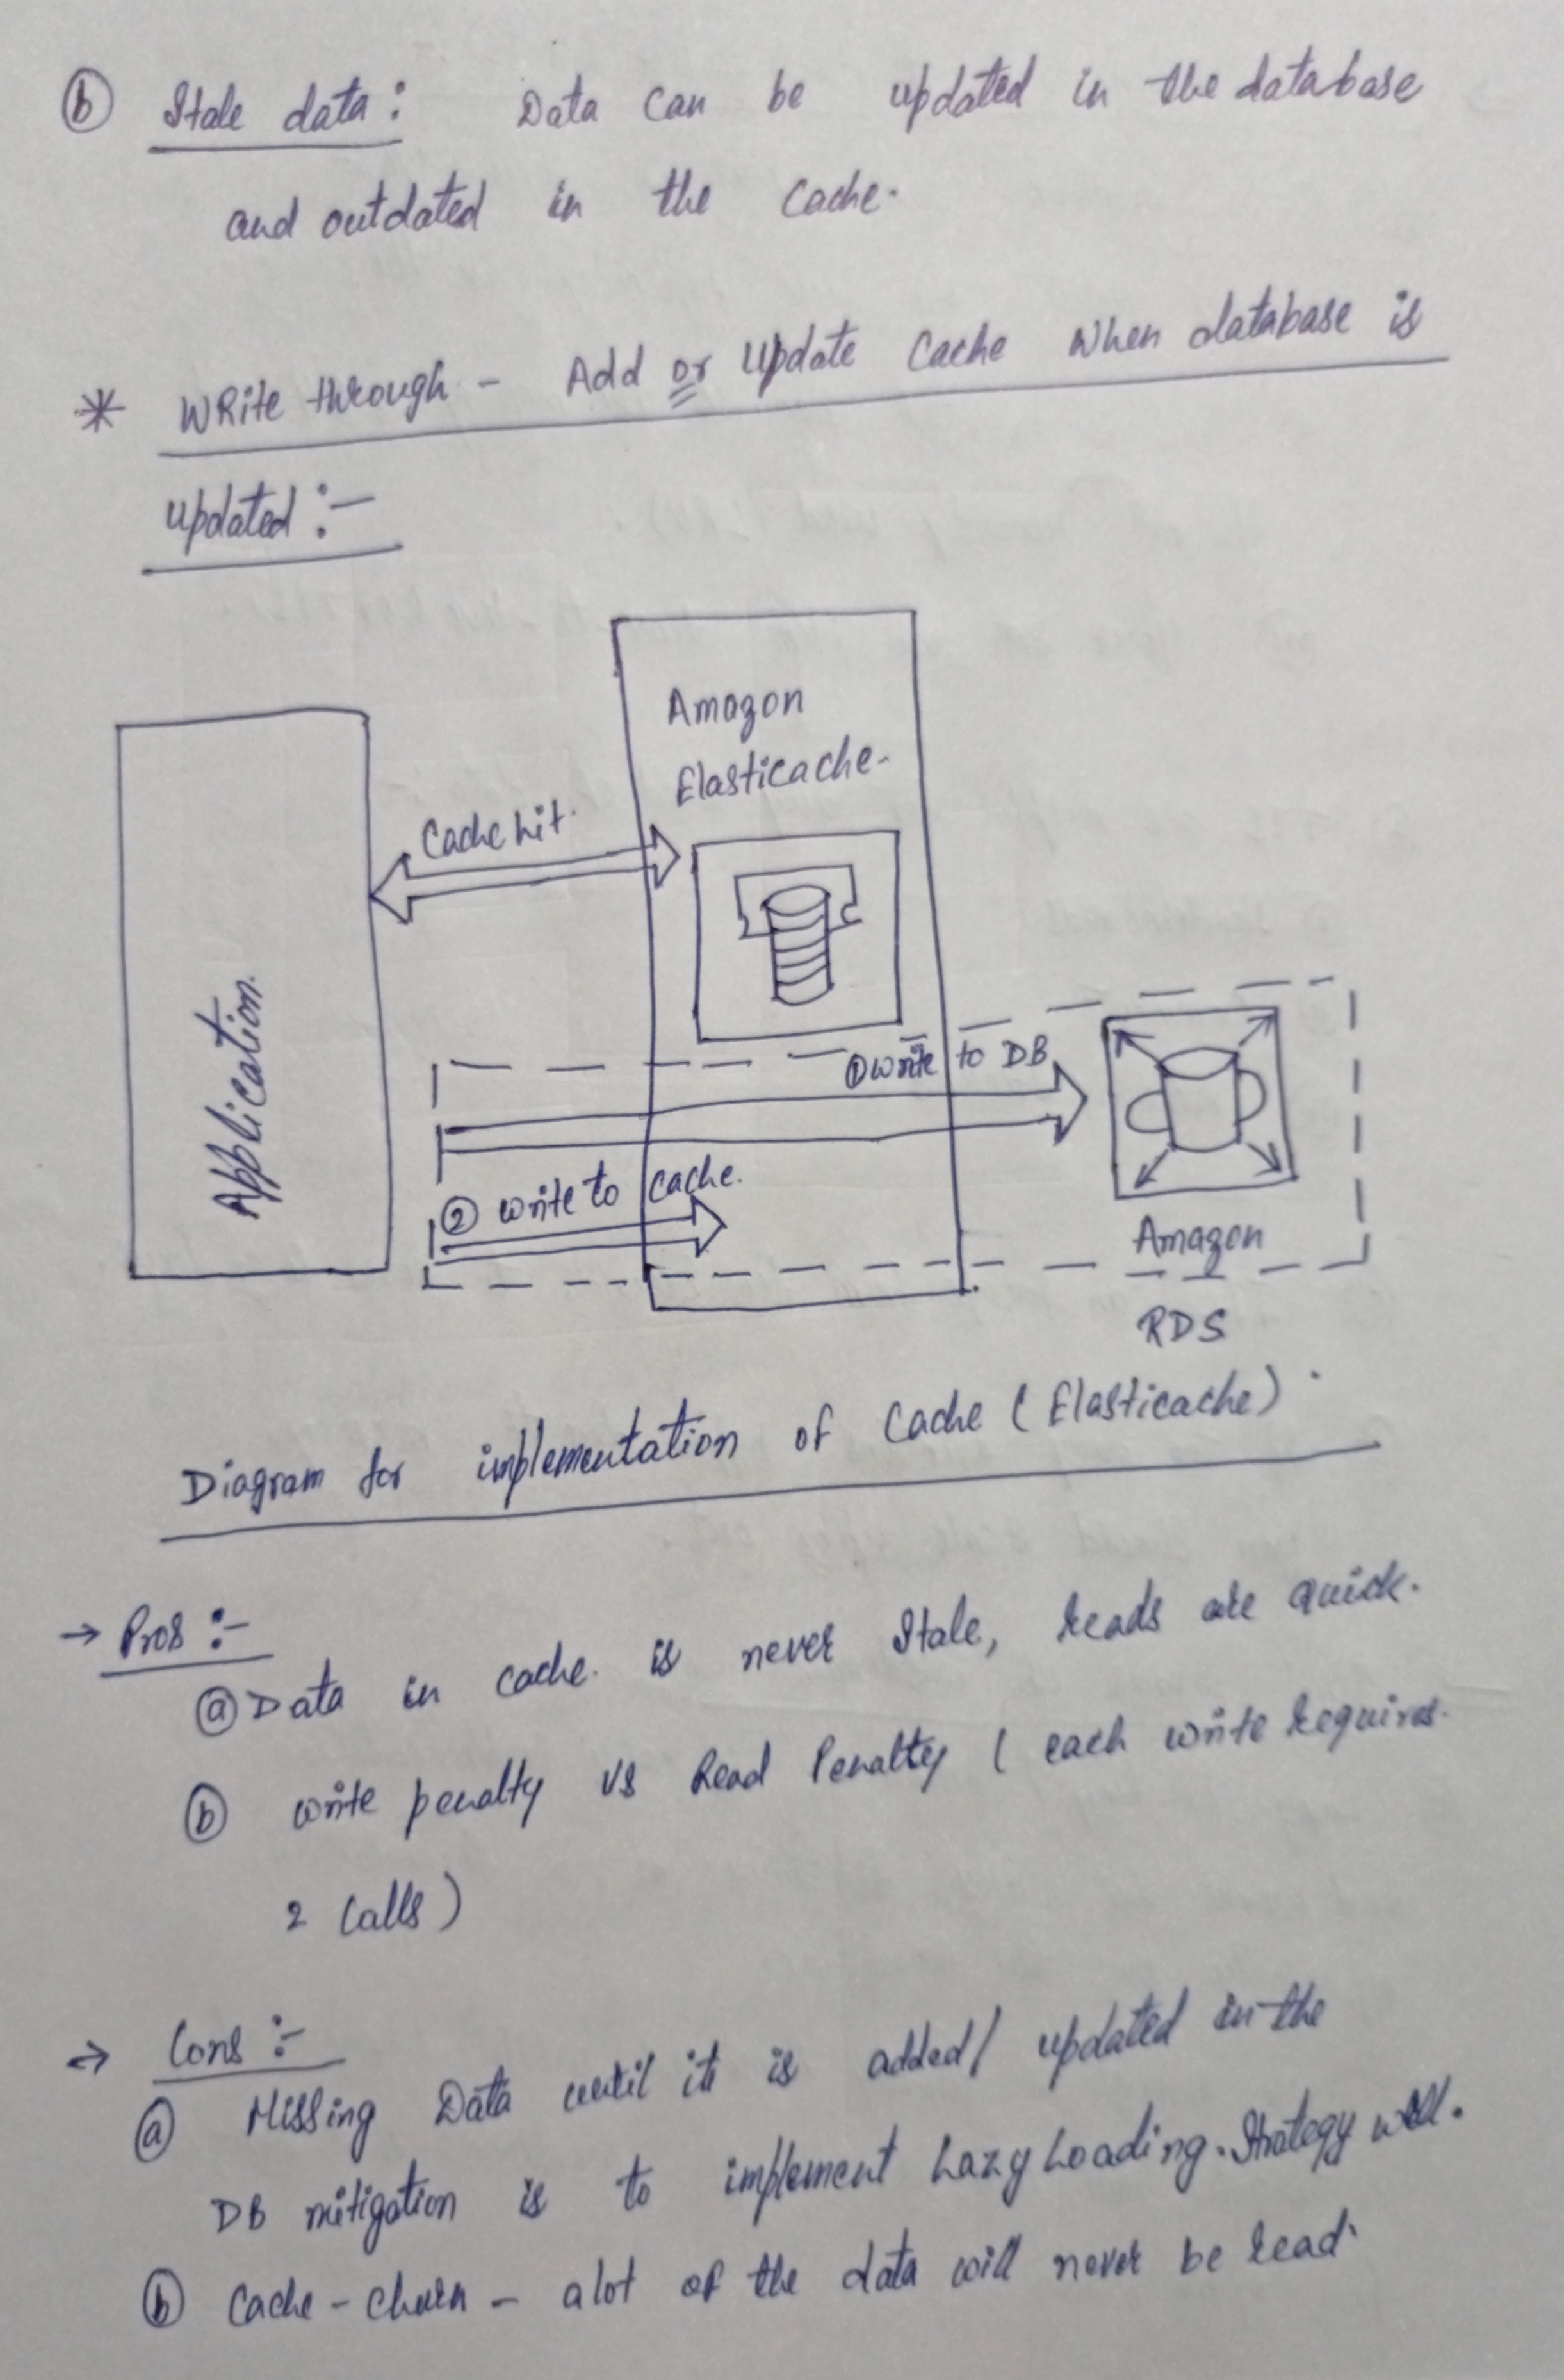 ⓑ Stale data : Data can be updated in the database
and outdated in the cache.
* Write through - Add or update cache when database is
updated :-
Amazon
Elasticache.
Cache hit.
Application.
① write to DB
② write to cache.
Amazon
RDS
Diagram for implementation of Cache (Elasticache).
→ Pros :-
ⓐ Data in cache. is never stale, reads are quick.
ⓑ write penalty vs Read Penalty ( each write requires.
2 calls )
→ Cons :-
ⓐ Missing Data until it is added / updated in the
DB mitigation is to implement Lazy Loading. Strategy
ⓑ Cache - churn - a lot of the data will never be read.